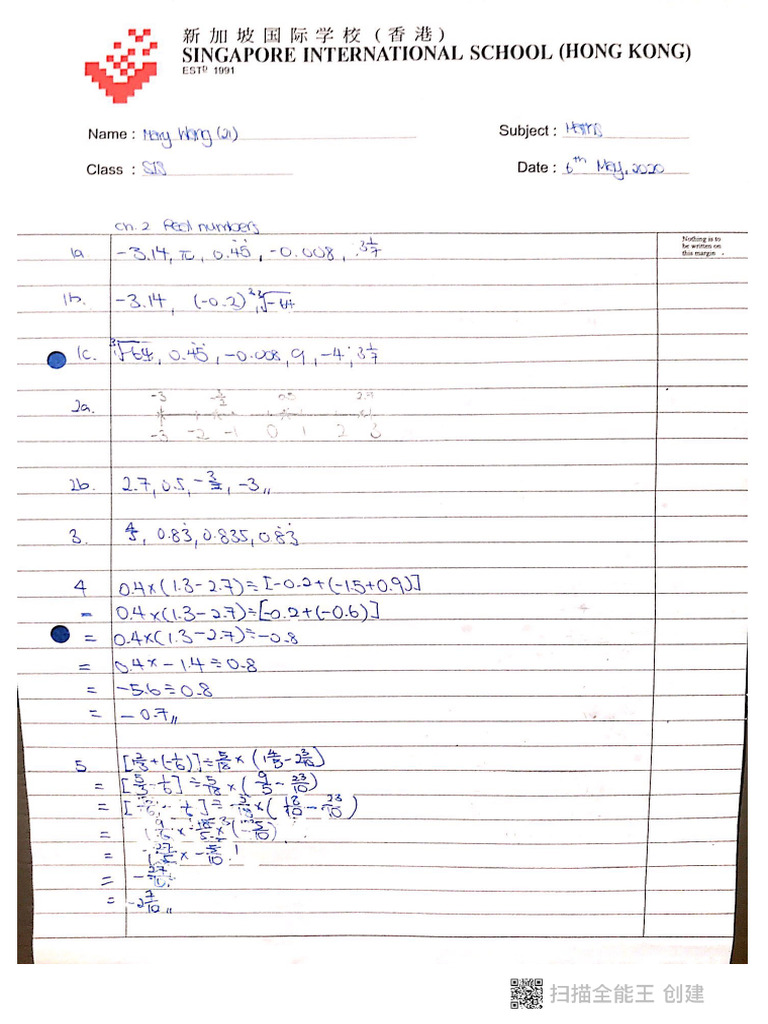 新加坡国际学校（香港）
SINGAPORE INTERNATIONAL SCHOOL (HONG KONG)
ESTD 1991
Name : Wong (21)
Subject : Maths
Class :
Date : 6th May, 2020
ch. 2 Real numbers
Nothing is to
be written on
this margin
1a -3.14, π, 0.4̇5̇, -0.008, 3 1/7
1b. -3.14, (-0.2)³, ³√-64
1c. ³√-64, 0.4̇5̇, -0.008, 9, -4, 3 1/7
2a.
-3 0.5 2.7
-3 -2 -1 0 1 2 3
2b. 2.7, 0.5, -3/2, -3,,
3. 4/5, 0.83̇, 0.835, 0.8̇3̇
4 0.4×(1.3-2.7)÷[-0.2+(-1.5+0.9)]
= 0.4×(1.3-2.7)÷[-0.2+(-0.6)]
= 0.4×(1.3-2.7)÷-0.8
= 0.4×-1.4÷0.8
= -5.6÷0.8
= -0.7,,
5 [+(-1/6)]÷5/18×(1 4/5-2 3/10)
= [-1/6]÷5/18×(9/5-23/10)
= [-1/6]÷5/18×(18/10-23/10)
= ×(-5/10)
= ×-5/10
=
= -2 7/10,,
扫描全能王 创建